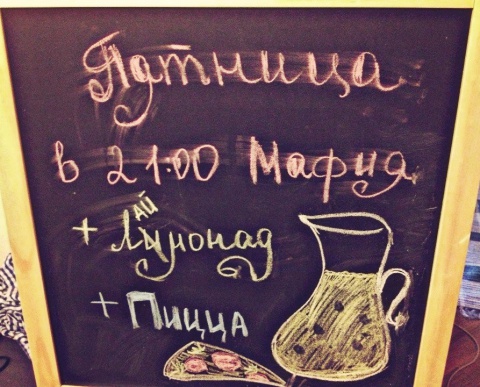 Пятница
в 21:00 Мафия
+ Лаймонад
+ Пицца